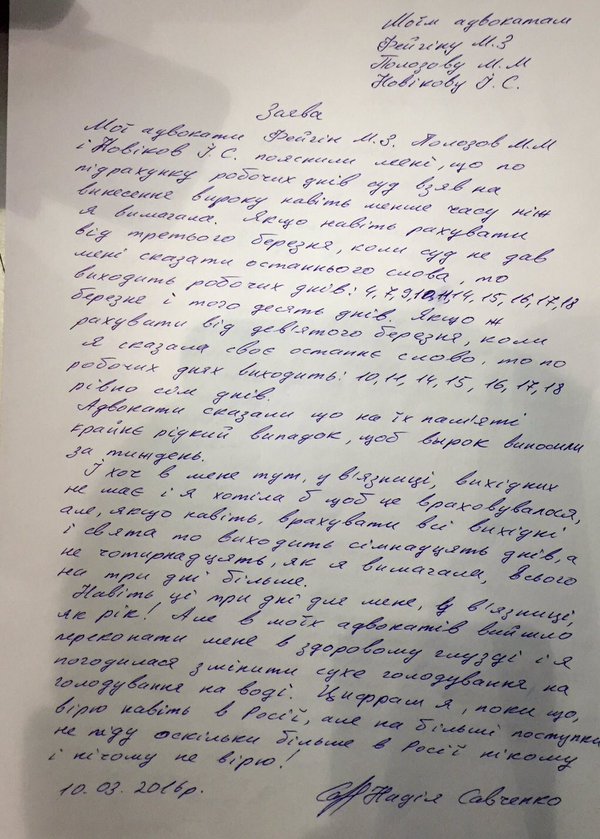 Моїм адвокатам
Фейгіну М.З
Полозову М.М
Новікову І.С.
Заява
Мої адвокати Фейгін М.З. Полозов М.М
і Новіков І.С. пояснили мені, що по
підрахунку робочих днів суд взяв на
винесення вироку навіть менше часу ніж
я вимагала. Якщо навіть рахувати
від третього березня, коли суд не дав
мені сказати останнього слова, то
виходить робочих днів: 4,7,9,10,11,14,15,16,17,18
березне і того десять днів. Якщо ж
рахувати від дев'ятого березня, коли
я сказала своє останнє слово, то по
робочих днях виходить: 10,11,14,15,16,17,18
рівно сім днів.
Адвокати сказали що на їх пам'яті
крайнє рідкий випадок, щоб вырок виносили
за тиждень.
І хоч в мене тут, у в'язниці, вихідних
не має і я хотіла б щоб це враховувалося,
але, якщо навіть, врахувати всі вихідні
і свята то виходить сімнадцять днів, а
не чотирнадцять, як я вимагала, всього
на три дні більше.
Навіть ці три дні для мене, у в'язниці,
як рік! Але в моїх адвокатів вийшло
переконати мене в здоровому глузді і я
погодилася змінити сухе голодування, на
голодування на воді. Цифрам я, поки що,
вірю навіть в Росії, але на більші поступки
не піду оскільки більше в Росії нікому
і нічому не вірю!
10.03.2016р. Надія Савченко